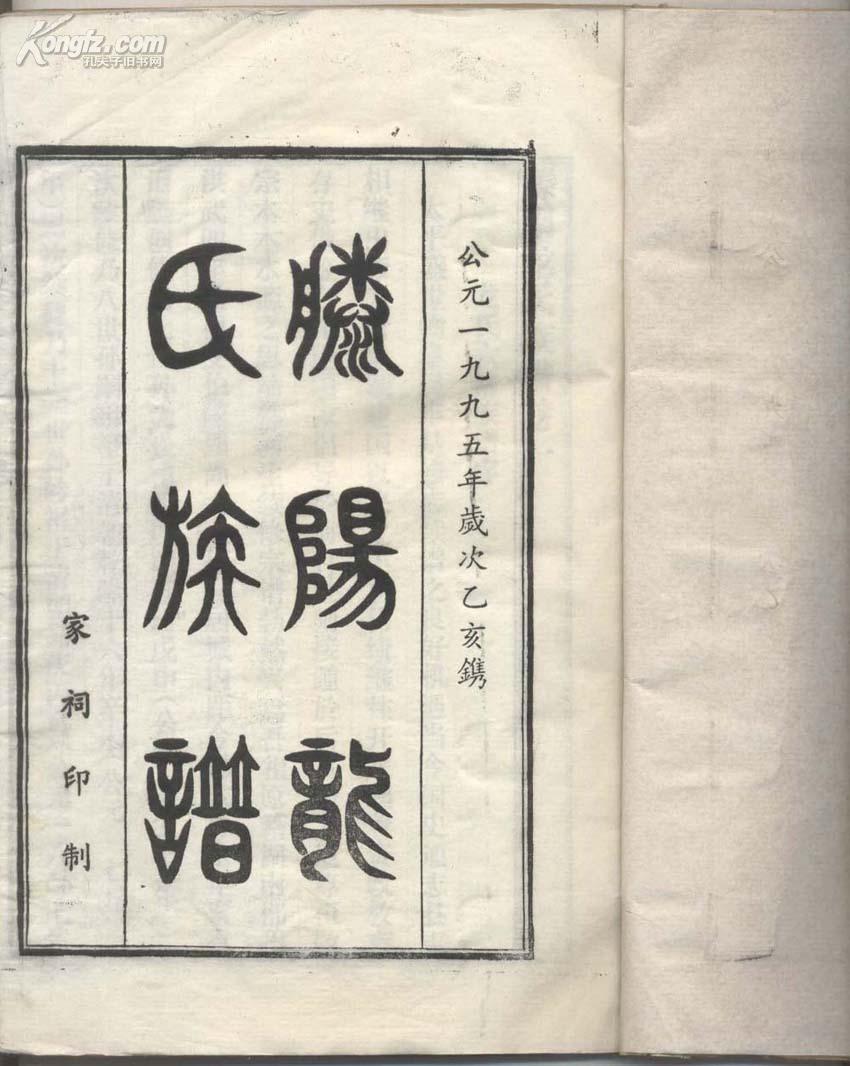 Kongfz.com
孔夫子旧书网
公元一九九五年歲次乙亥鐫
滕陽龍
氏族譜
家祠印制